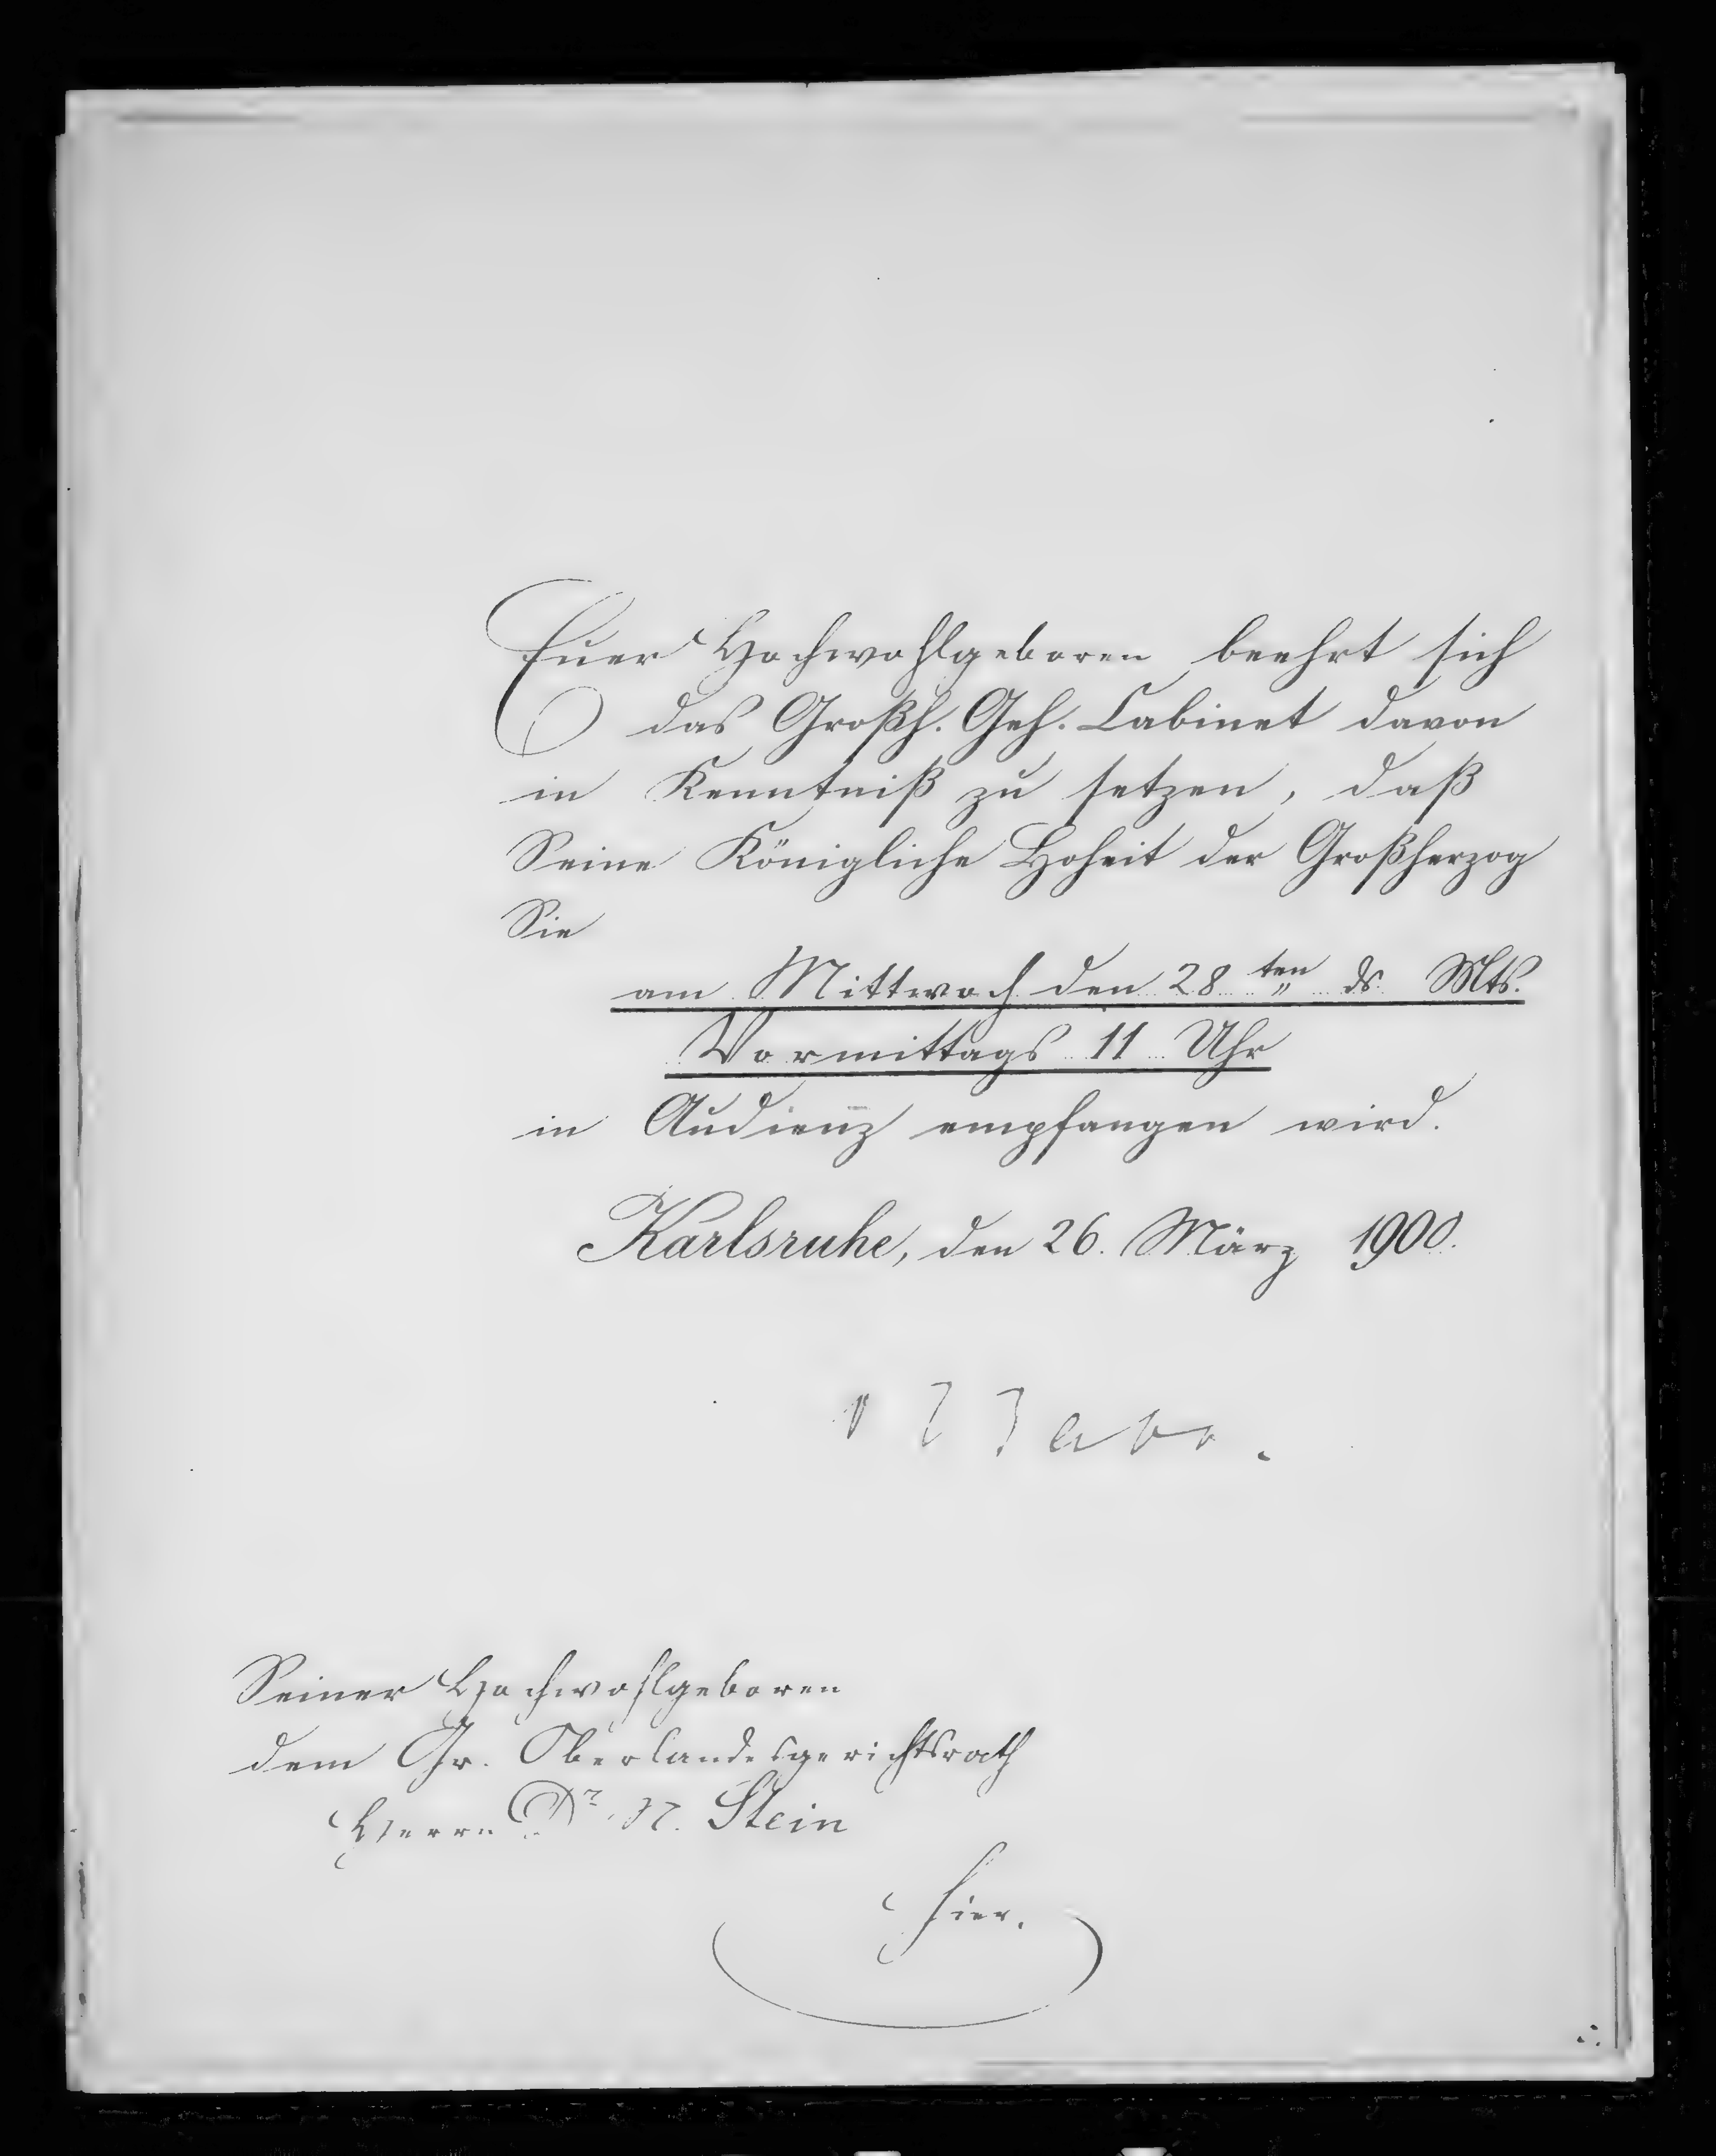 Euer Hochwohlgeboren beehrt sich
das Großh. Geh. Cabinet davon
in Kenntniß zu setzen, daß
Seine Königliche Hoheit der Großherzog
Sie
am Mittwoch den 28ten ds. Mts.
Vormittags 11 Uhr
in Audienz empfangen wird.
Karlsruhe, den 26. März 1900.
Seiner Hochwohlgeboren
dem Gr. Oberlandesgerichtsrath
Herrn Dr. N. Stein
hier.